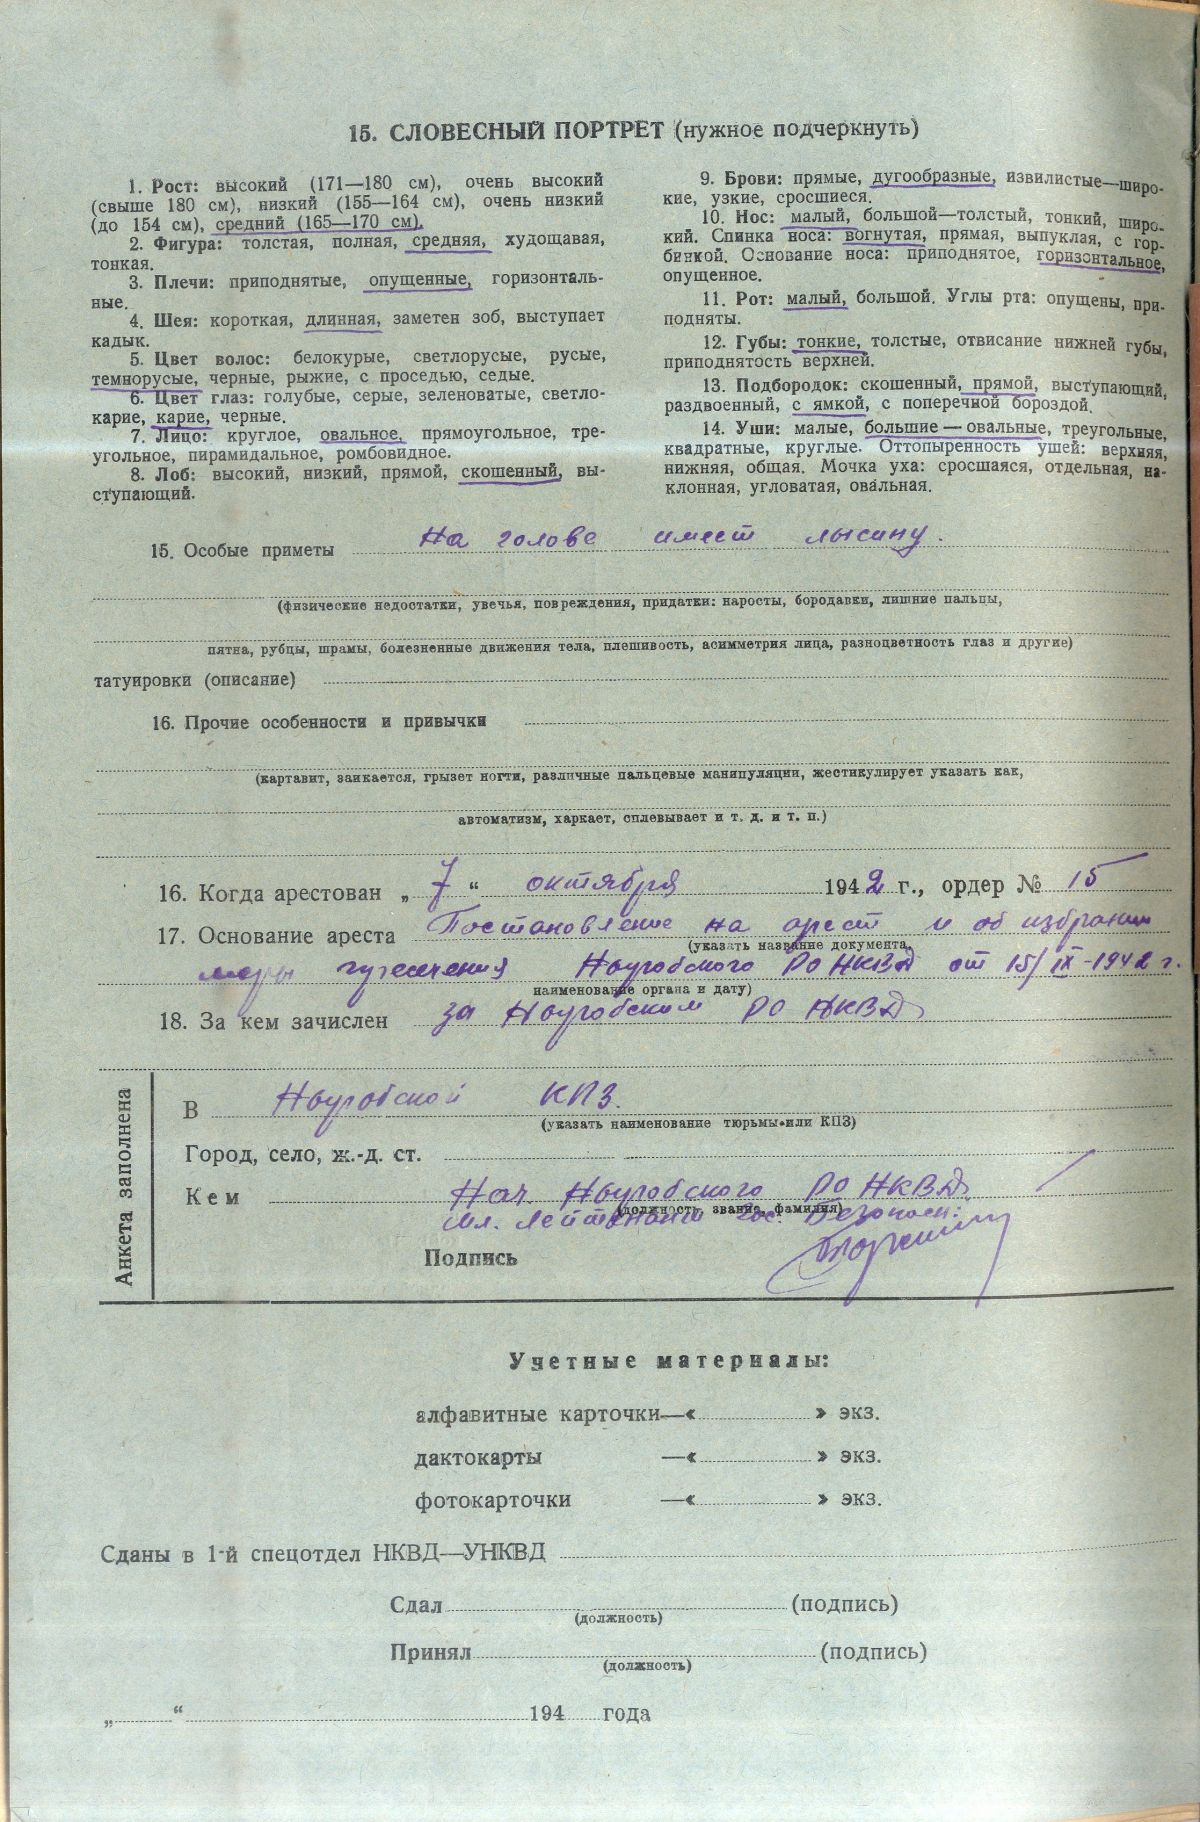 15. СЛОВЕСНЫЙ ПОРТРЕТ (нужное подчеркнуть)
1. Рост: высокий (171—180 см), очень высокий
(свыше 180 см), низкий (155—164 см), очень низкий
(до 154 см), средний (165—170 см).
2. Фигура: толстая, полная, средняя, худощавая,
тонкая.
3. Плечи: приподнятые, опущенные, горизонталь-
ные.
4. Шея: короткая, длинная, заметен зоб, выступает
кадык.
5. Цвет волос: белокурые, светлорусые, русые,
темнорусые, черные, рыжие, с проседью, седые.
6. Цвет глаз: голубые, серые, зеленоватые, светло-
карие, карие, черные.
7. Лицо: круглое, овальное, прямоугольное, тре-
угольное, пирамидальное, ромбовидное.
8. Лоб: высокий, низкий, прямой, скошенный, вы-
ступающий.
9. Брови: прямые, дугообразные, извилистые—широ-
кие, узкие, сросшиеся.
10. Нос: малый, большой—толстый, тонкий, широ-
кий. Спинка носа: вогнутая, прямая, выпуклая, с гор-
бинкой. Основание носа: приподнятое, горизонтальное,
опущенное.
11. Рот: малый, большой. Углы рта: опущены, при-
подняты.
12. Губы: тонкие, толстые, отвисание нижней губы,
приподнятость верхней.
13. Подбородок: скошенный, прямой, выступающий,
раздвоенный, с ямкой, с поперечной бороздой.
14. Уши: малые, большие — овальные, треугольные,
квадратные, круглые. Оттопыренность ушей: верхняя,
нижняя, общая. Мочка уха: сросшаяся, отдельная, на-
клонная, угловатая, овальная.
15. Особые приметы На голове имеет лысину.
(физические недостатки, увечья, повреждения, придатки: наросты, бородавки, лишние пальцы,
пятна, рубцы, шрамы, болезненные движения тела, плешивость, асимметрия лица, разноцветность глаз и другие)
татуировки (описание)
16. Прочие особенности и привычки
(картавит, заикается, грызет ногти, различные пальцевые манипуляции, жестикулирует указать как,
автоматизм, харкает, сплевывает и т. д. и т. п.)
16. Когда арестован „ 7 “ октября 1942 г., ордер № 15
17. Основание ареста Постановление на арест и об избрании
(указать название документа,
меры пресечения Ныробского РО НКВД от 15/IX-1942 г.
наименование органа и дату)
18. За кем зачислен за Ныробским РО НКВД
Анкета заполнена
В Ныробской КПЗ.
(указать наименование тюрьмы или КПЗ)
Город, село, ж.-д. ст.
Кем Нач. Ныробского РО НКВД
(должность, звание, фамилия)
мл. лейтенант гос. Безопасн.
Подпись
Учетные материалы:
алфавитные карточки—« » экз.
дактокарты —« » экз.
фотокарточки —« » экз.
Сданы в 1-й спецотдел НКВД—УНКВД
Сдал (подпись)
(должность)
Принял (подпись)
(должность)
„ “ 194 года